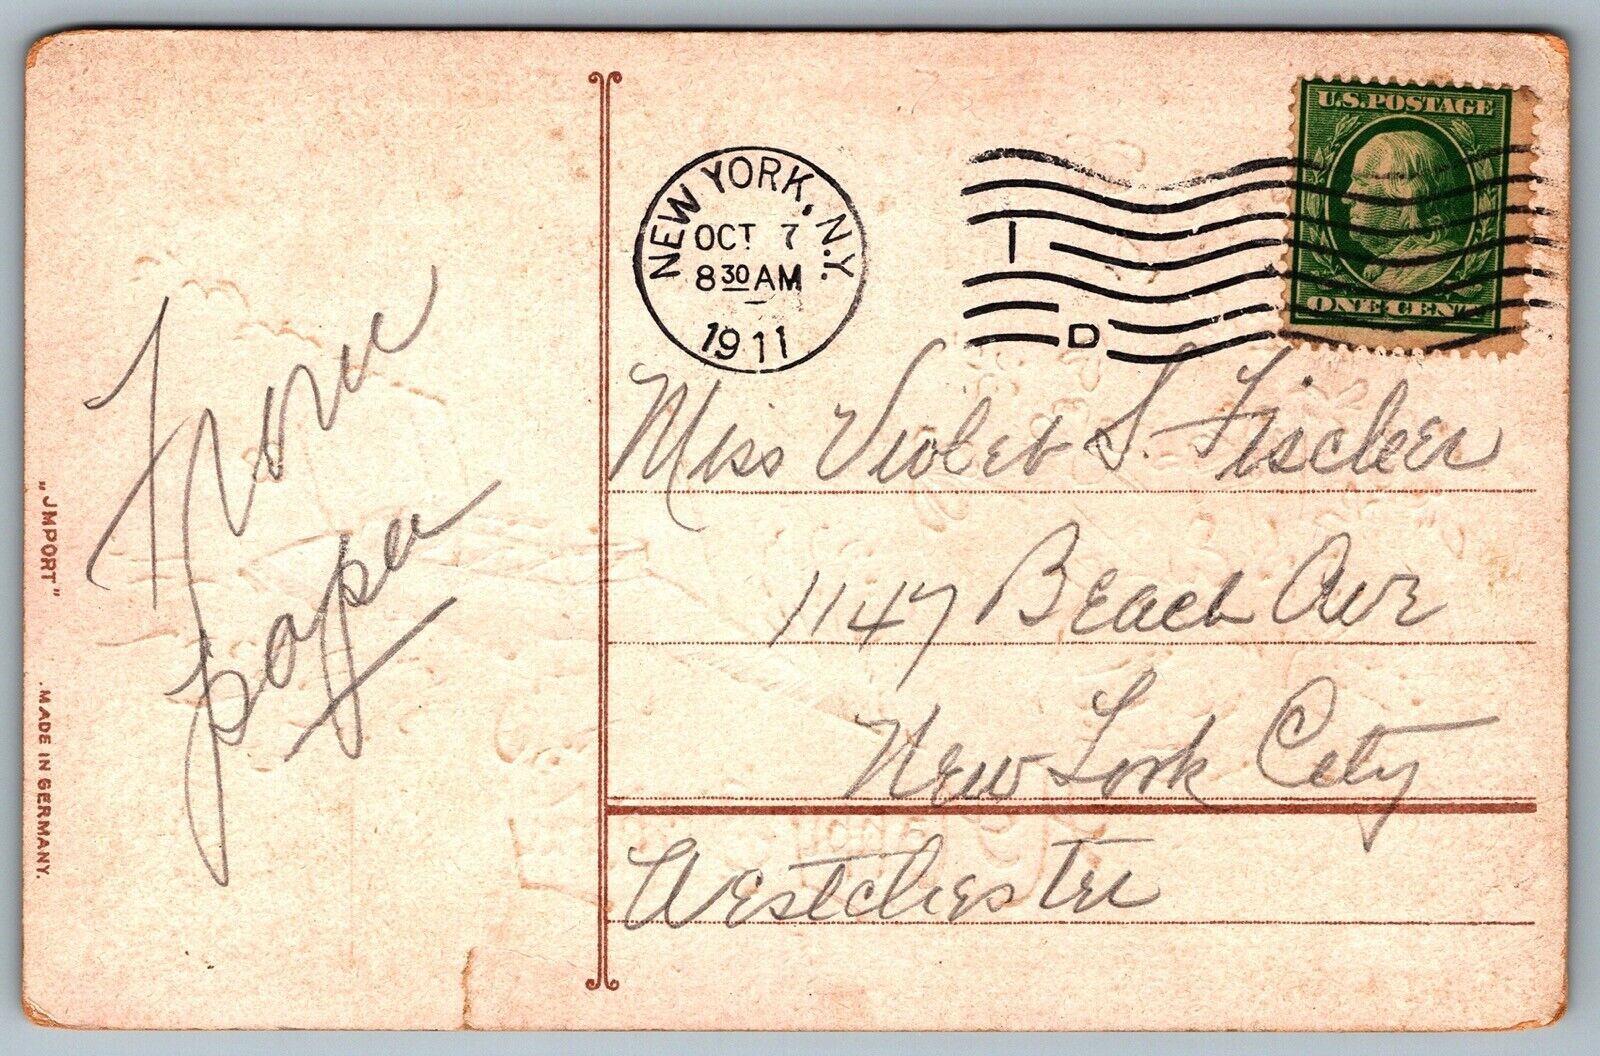 U.S. POSTAGE
ONE CENT
NEW YORK, N.Y.
OCT 7
8 30 AM
1911
1
D
From
papa
Miss Violet S. Fischer
1147 Beach Ave
New York City
Westchester
„JMPORT"
.MADE IN GERMANY.